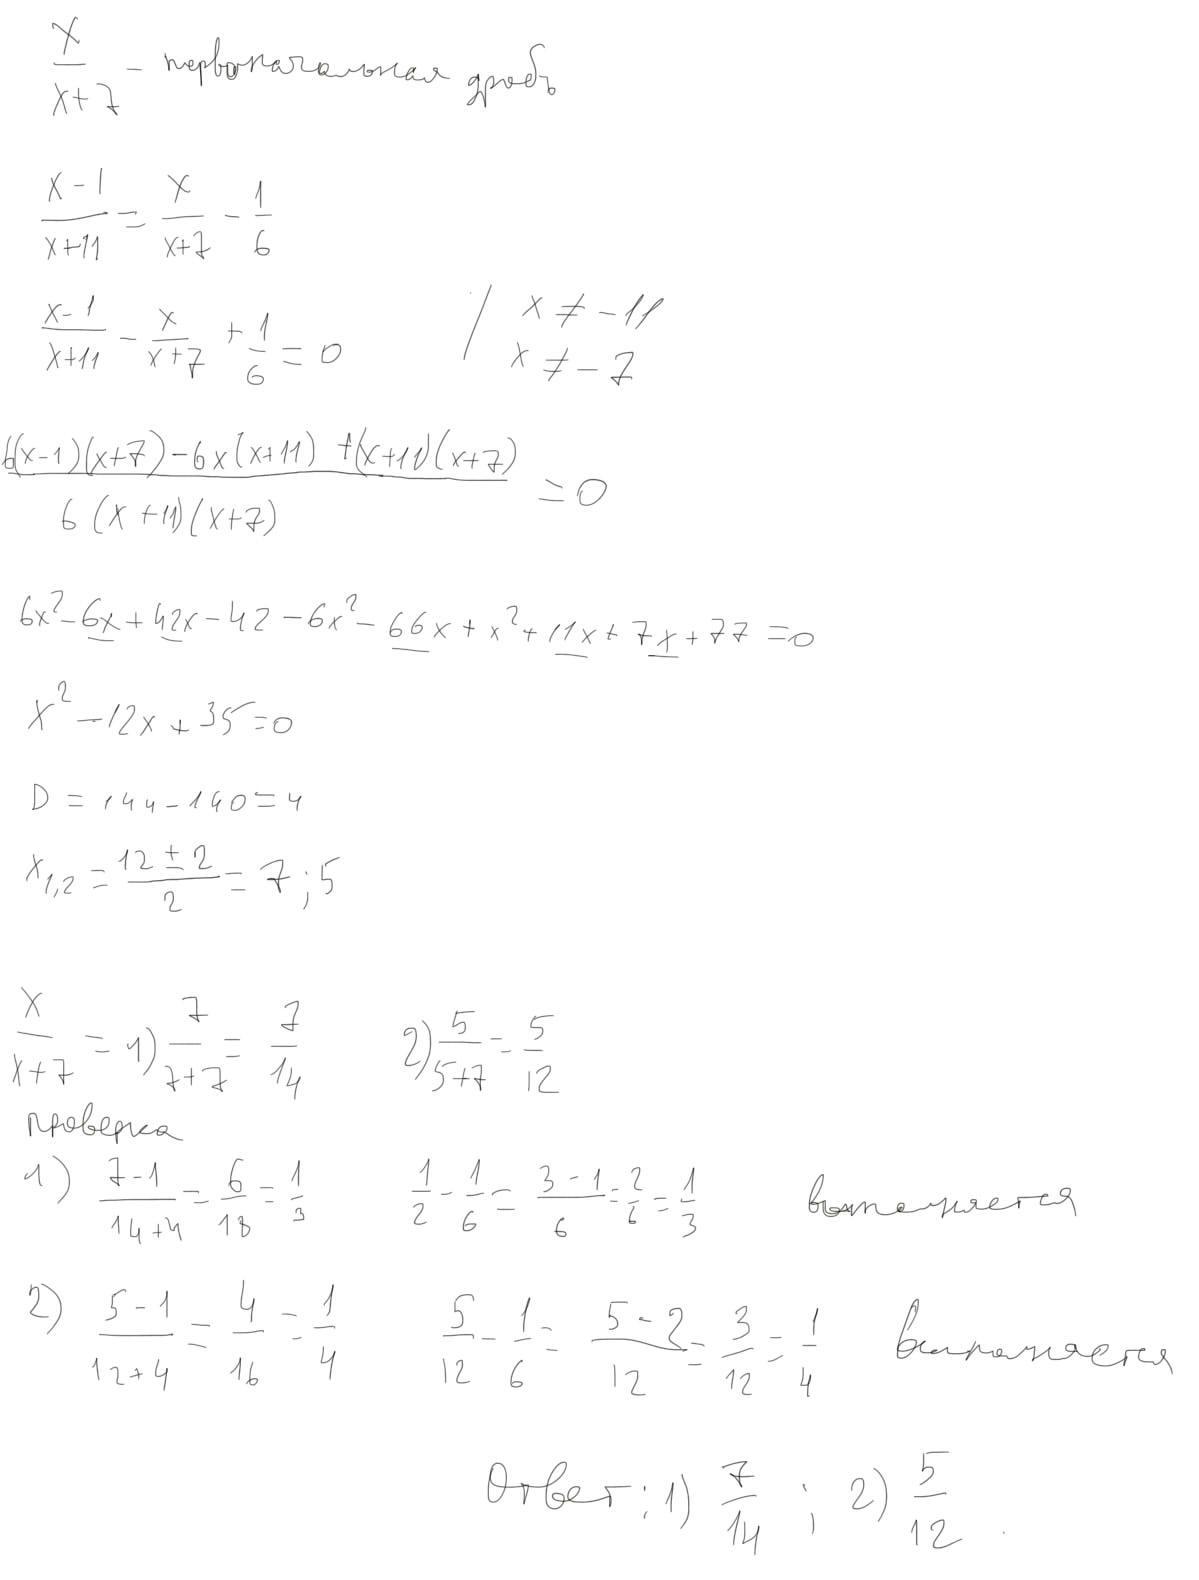 x/(x+7) - первоначальная дробь
(x-1)/(x+11) = x/(x+7) - 1/6
(x-1)/(x+11) - x/(x+7) + 1/6 = 0 / x ≠ -11
x ≠ -7
(6(x-1)(x+7) - 6x(x+11) + (x+11)(x+7))/(6(x+11)(x+7)) = 0
6x² - 6x + 42x - 42 - 6x² - 66x + x² + 11x + 7x + 77 = 0
x² - 12x + 35 = 0
D = 144 - 140 = 4
x₁,₂ = (12 ± 2)/2 = 7; 5
x/(x+7) = 1) 7/(7+7) = 7/14 2) 5/(5+7) = 5/12
проверка
1) (7-1)/(14+4) = 6/18 = 1/3 1/2 - 1/6 = (3-1)/6 = 2/6 = 1/3 выполняется
2) (5-1)/(12+4) = 4/16 = 1/4 5/12 - 1/6 = (5-2)/12 = 3/12 = 1/4 выполняется
Ответ: 1) 7/14 ; 2) 5/12 .